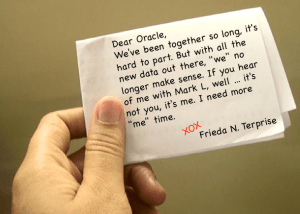 Dear Oracle,
We've been together so long, it's
hard to part. But with all the
new data out there, "we" no
longer make sense. If you hear
of me with Mark L, well ... it's
not you, it's me. I need more
"me" time.
XOX
Frieda N. Terprise